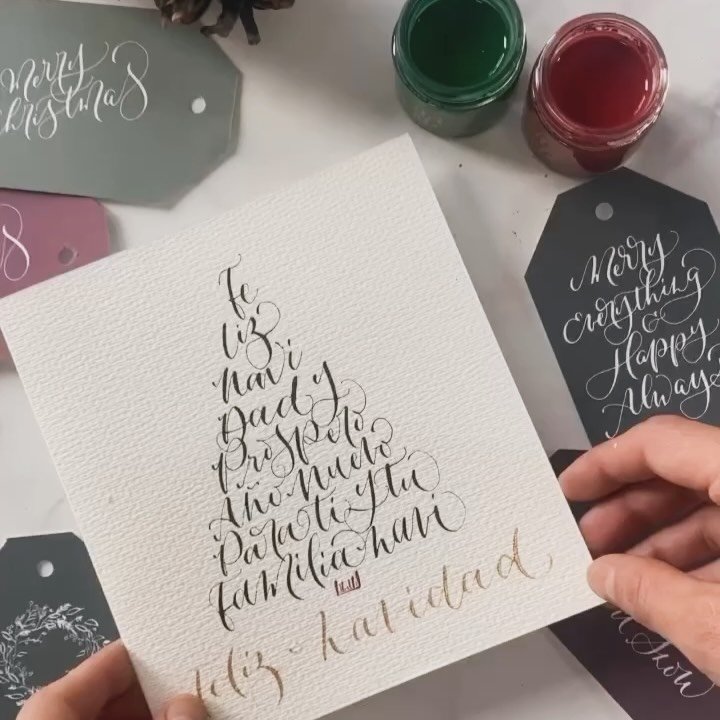 Merry
Christmas
s
Fe
liz
Navi
Dad y
Prospero
Año Nuevo
Para ti y tu
familia navi
feliz navidad
Merry
Everything
&
Happy
Always
Snow